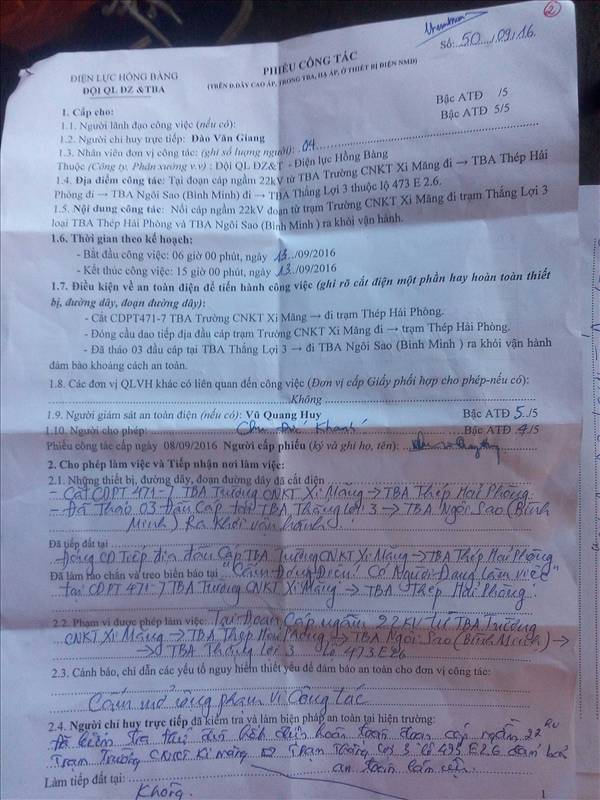 2
Số: 50 /09/16.
ĐIỆN LỰC HỒNG BÀNG
PHIẾU CÔNG TÁC
ĐỘI QL ĐZ &TBA
(TRÊN Đ.DÂY CAO ÁP, TRONG TBA, HẠ ÁP, Ở THIẾT BỊ ĐIỆN NMĐ)
1. Cấp cho:
1.1. Người lãnh đạo công việc (nếu có): Bậc ATĐ /5
1.2. Người chỉ huy trực tiếp: Đào Văn Giang Bậc ATĐ 5/5
1.3. Nhân viên đơn vị công tác: (ghi số lượng người): 04
Thuộc (Công ty, Phân xưởng v.v) : Đội QL ĐZ&T - Điện lực Hồng Bàng
1.4. Địa điểm công tác: Tại đoạn cáp ngầm 22kV từ TBA Trường CNKT Xi Măng đi → TBA Thép Hải
Phòng đi → TBA Ngôi Sao (Bình Minh) đi → TBA Thắng Lợi 3 thuộc lộ 473 E 2.6.
1.5. Nội dung công tác: Nối cáp ngầm 22kV đoạn từ trạm Trường CNKT Xi Măng đi trạm Thắng Lợi 3
loại TBA Thép Hải Phòng và TBA Ngôi Sao (Bình Minh ) ra khỏi vận hành.
1.6. Thời gian theo kế hoạch:
- Bắt đầu công việc: 06 giờ 00 phút, ngày 13../09/2016
- Kết thúc công việc: 15 giờ 00 phút, ngày 13../09/2016
1.7. Điều kiện về an toàn điện để tiến hành công việc (ghi rõ cắt điện một phần hay hoàn toàn thiết
bị, đường dây, đoạn đường dây):
- Cắt CDPT471-7 TBA Trường CNKT Xi Măng → đi trạm Thép Hải Phòng.
- Đóng cầu dao tiếp địa đầu cáp trạm Trường CNKT Xi Măng đi → trạm Thép Hải Phòng.
- Đã tháo 03 đầu cáp tại TBA Thắng Lợi 3 → đi TBA Ngôi Sao (Bình Minh ) ra khỏi vận hành
đảm bảo khoảng cách an toàn.
1.8. Các đơn vị QLVH khác có liên quan đến công việc (Đơn vị cấp Giấy phối hợp cho phép-nếu có):
Không
1.9. Người giám sát an toàn điện (nếu có): Vũ Quang Huy Bậc ATĐ 5./5
1.10. Người cho phép: Chu Đức Khanh Bậc ATĐ 4/5
Phiếu công tác cấp ngày 08/09/2016 Người cấp phiếu (ký và ghi họ, tên):
2. Cho phép làm việc và Tiếp nhận nơi làm việc:
2.1. Những thiết bị, đường dây, đoạn đường dây đã cắt điện
- Cắt CDPT 471-7 TBA Trường CNKT Xi Măng → TBA Thép Hải Phòng.
- Đã Tháo 03 Đầu Cáp tại TBA Thắng Lợi 3 → TBA Ngôi Sao (Bình
Minh) Ra khỏi vận hành.
Đã tiếp đất tại
Đóng CD Tiếp địa đầu Cáp TBA Trường CNKT Xi Măng → TBA Thép Hải Phòng
Đã làm rào chắn và treo biển báo tại "Cấm Đóng Điện! Có Người Đang làm việc"
tại CDPT 471-7 TBA Trường CNKT Xi Măng → TBA Thép Hải Phòng.
2.2. Phạm vi được phép làm việc: Tại Đoạn Cáp ngầm 22 KV từ TBA Trường
CNKT Xi Măng → TBA Thép Hải Phòng → TBA Ngôi Sao (Bình Minh) →
→ TBA Thắng Lợi 3 Lộ 473 E2.6
2.3. Cảnh báo, chỉ dẫn các yếu tố nguy hiểm thiết yếu để đảm bảo an toàn cho đơn vị công tác:
Cấm mở rộng phạm vi công tác
2.4. Người chỉ huy trực tiếp đã kiểm tra và làm biện pháp an toàn tại hiện trường:
Đã kiểm tra hoàn toàn đoạn cáp ngầm 22 KV
Trạm Trường CNKT Xi măng Trạm Thắng Lợi 3 lộ 473 E2.6 đảm bảo
an toàn
Làm tiếp đất tại:
Không.
1